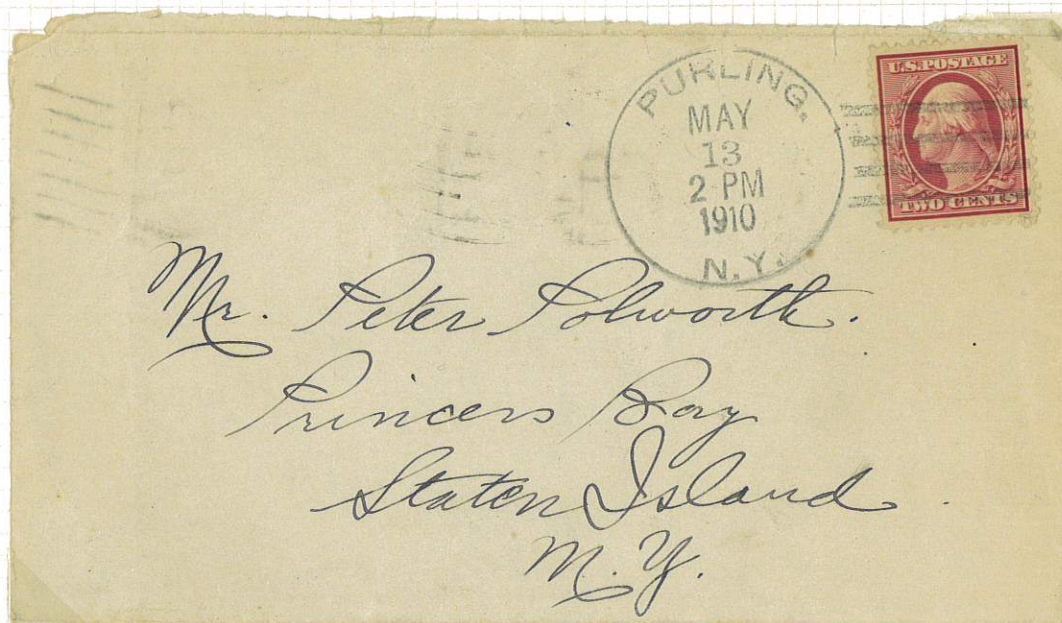 PURLING.
MAY
13
2 PM
1910
N.Y.
U.S. POSTAGE
TWO CENTS
Mr. Peter Polworth.
Princess Bay
Staten Island
N.Y.